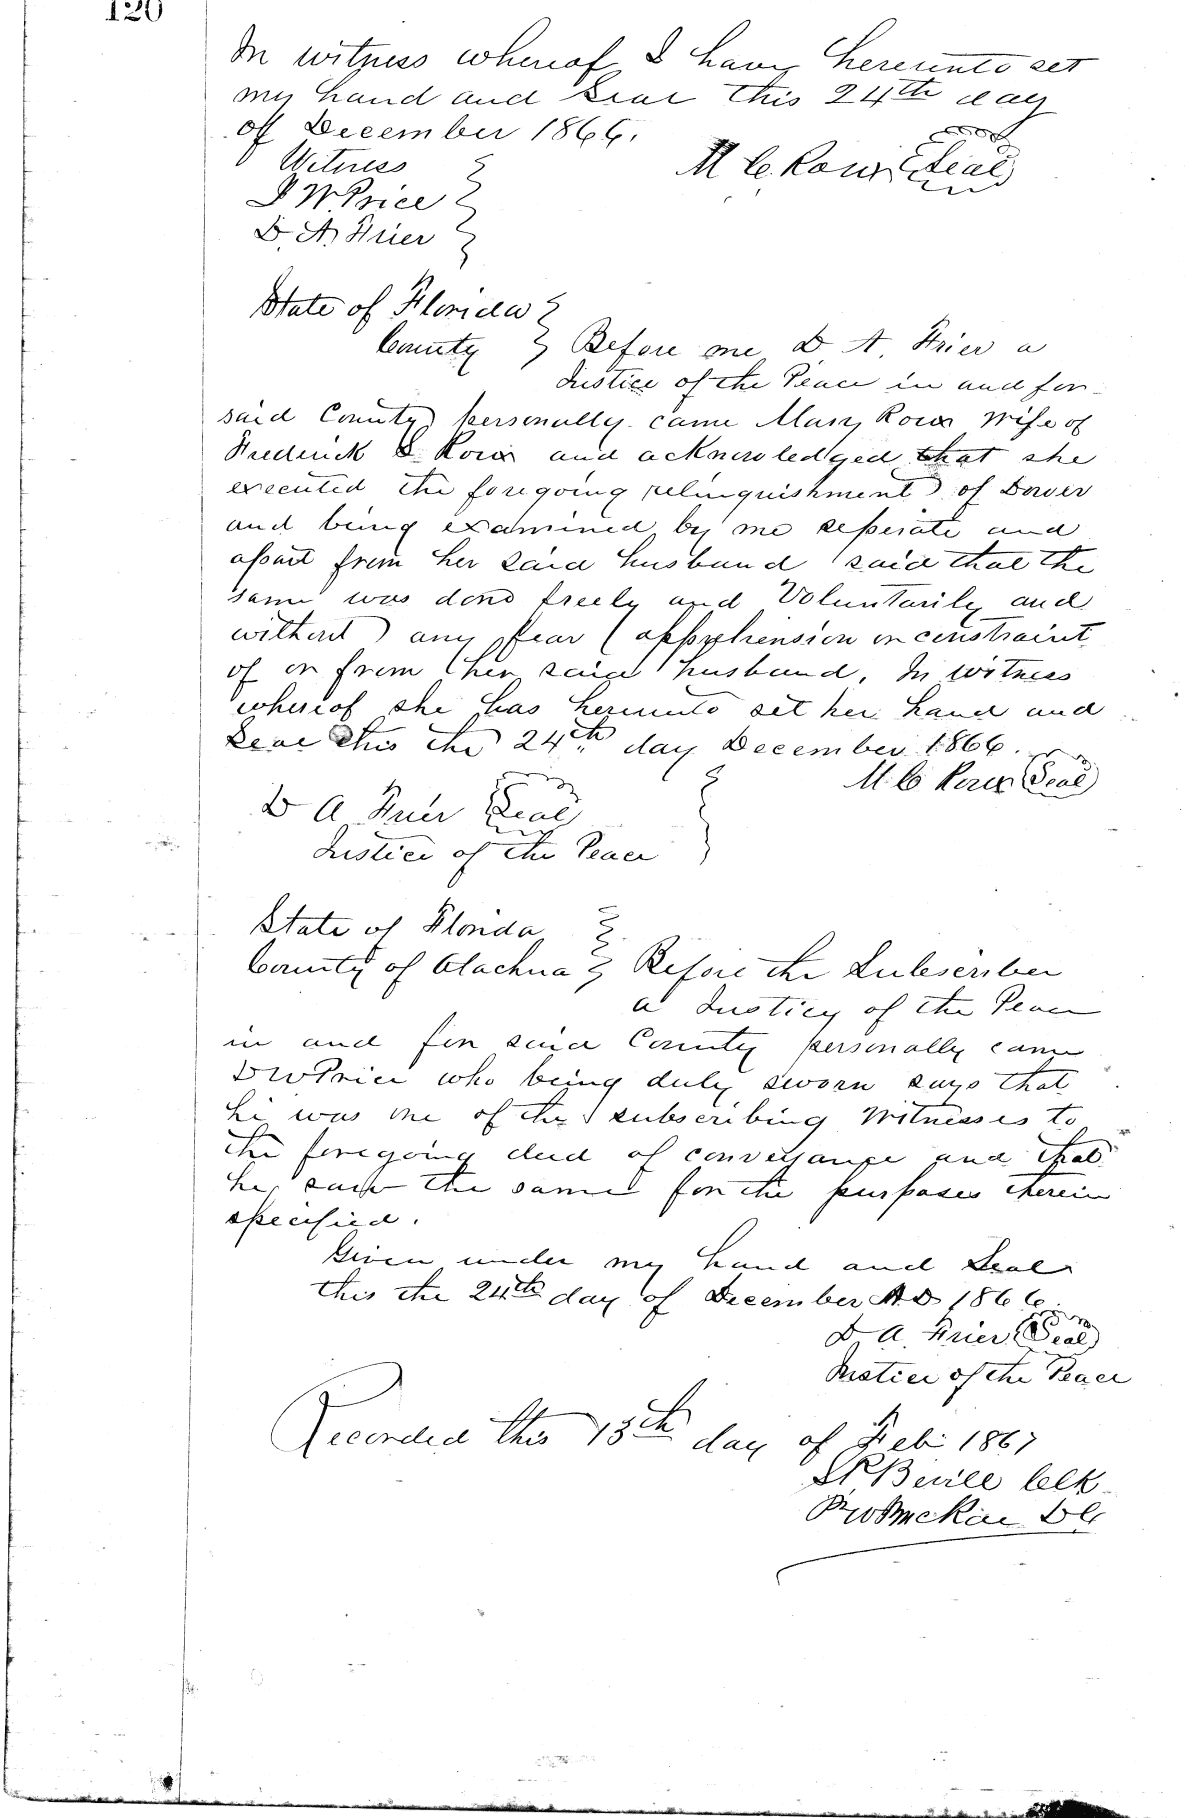 120
In witness whereof I have hereunto set
my hand and Seal this 24th day
of December 1866.
Witness
D W Price
D. A. Frier
M C. Roux (Seal)
State of Florida
County } Before me D A Frier a
Justice of the Peace in and for
said County personally came Mary Roux Wife of
Frederick S Roux and acknowledged that she
executed the foregoing relinquishment of Dower
and being examined by me seperate and
apart from her said husband said that the
same was done freely and Voluntarily and
without any fear apprehension or constraint
of or from her said husband. In witness
whereof she has hereunto set her hand and
Seal this the 24th day December 1866.
M. C Roux (Seal)
D A Frier (Seal)
Justice of the Peace
State of Florida
County of Alachua } Before the Subscriber
a Justice of the Peace
in and for said County personally came
D W Price who being duly sworn says that
he was one of the subscribing Witnesses to
the foregoing deed of conveyance and that
he saw the same for the purposes therein
specified.
Given under my hand and Seal
this the 24th day of December A.D 1866.
D A. Frier (Seal)
Justice of the Peace
Recorded this 15th day of Feb 1867
Beville Clk
McKee DC